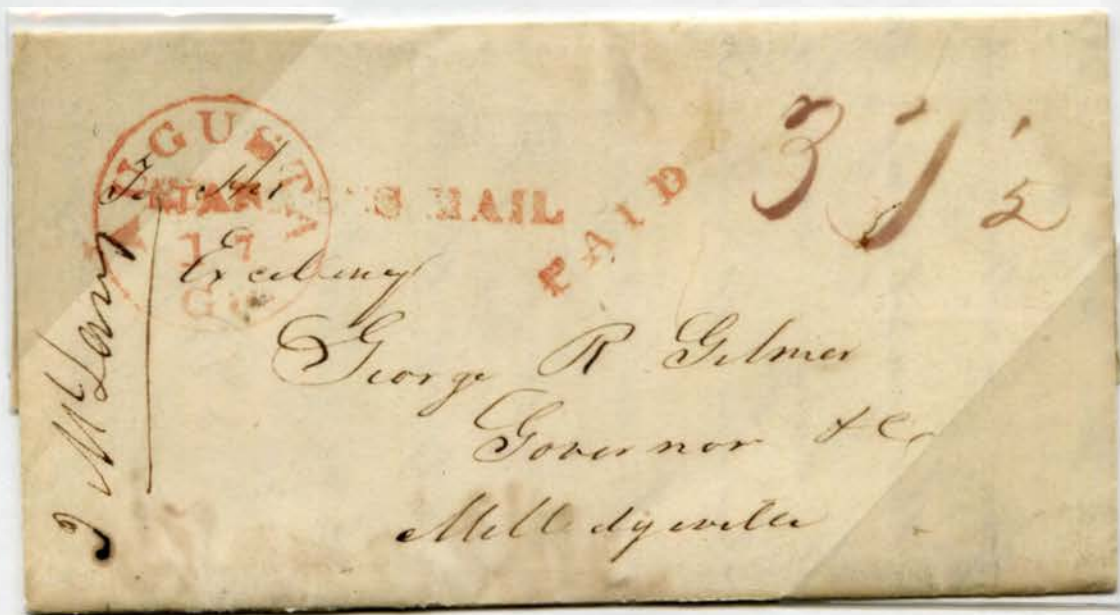 AUGUSTA
17
Ga
MAIL
PAID
37 1/2
To His
Excellency
George R Gilmer
Governor &c
Milledgeville